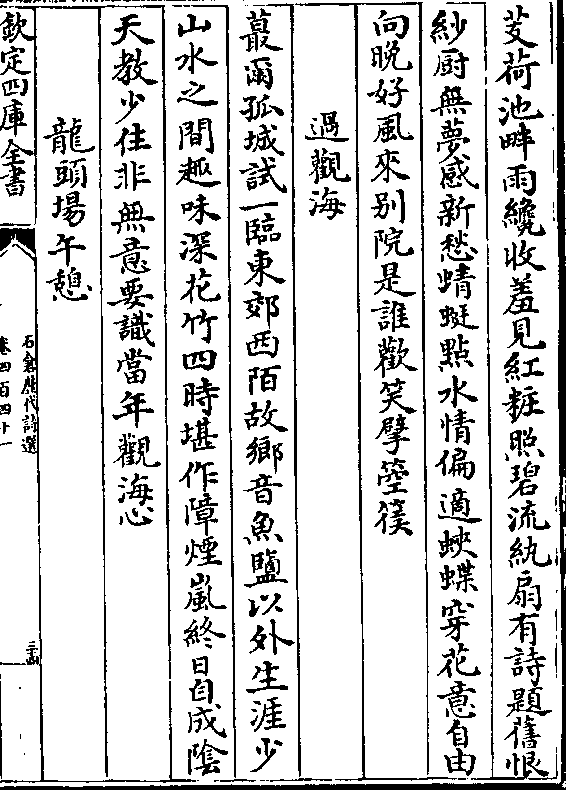 芰荷池畔雨纔收羞見紅粧照碧流紈扇有詩題舊恨
紗厨無夢感新愁蜻蜓點水情偏適蛺蝶穿花意自由
向晚好風來别院是誰歡笑擘箜篌
過觀海
蕞爾孤城試一臨東郊西陌故鄉音魚鹽以外生涯少
山水之間趣味深花竹四時堪作障煙嵐終日自成陰
天教少住非無意要識當年觀海心
龍頭場午憩
欽定四庫全書
石倉歷代詩選
卷四百四十一